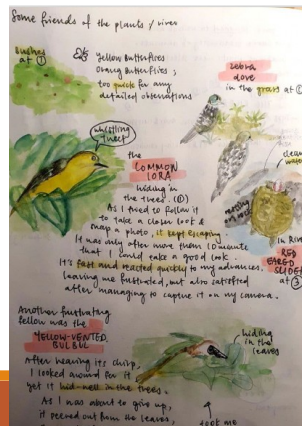 Some friends of the plants / river
bushes
at ①
Yellow Butterflies
Orang Butterflies ;
too quick for any
detailed observations
zebra
dove
in the grass at
whistling
tweet
the
COMMON
IORA
hiding in
the trees.
As I tried to follow it
to take a closer look &
snap a photo, it kept escaping
It was only after more than 10 minute
that I could take a good look.
It's fast and reacted quickly to my advances,
leaving me frustrated, but also satisfied
after managing to capture it on my camera.
clean
water
resting
on rock
In River
RED
EARED
SLIDER
at ③
Another frustrating
fellow was the
YELLOW-VENTED
BULBUL
After hearing its chirp,
I looked around for it
yet it hid well in the trees.
As I was about to give up,
it peered out from the leaves,
hiding
in the
leaves
took me